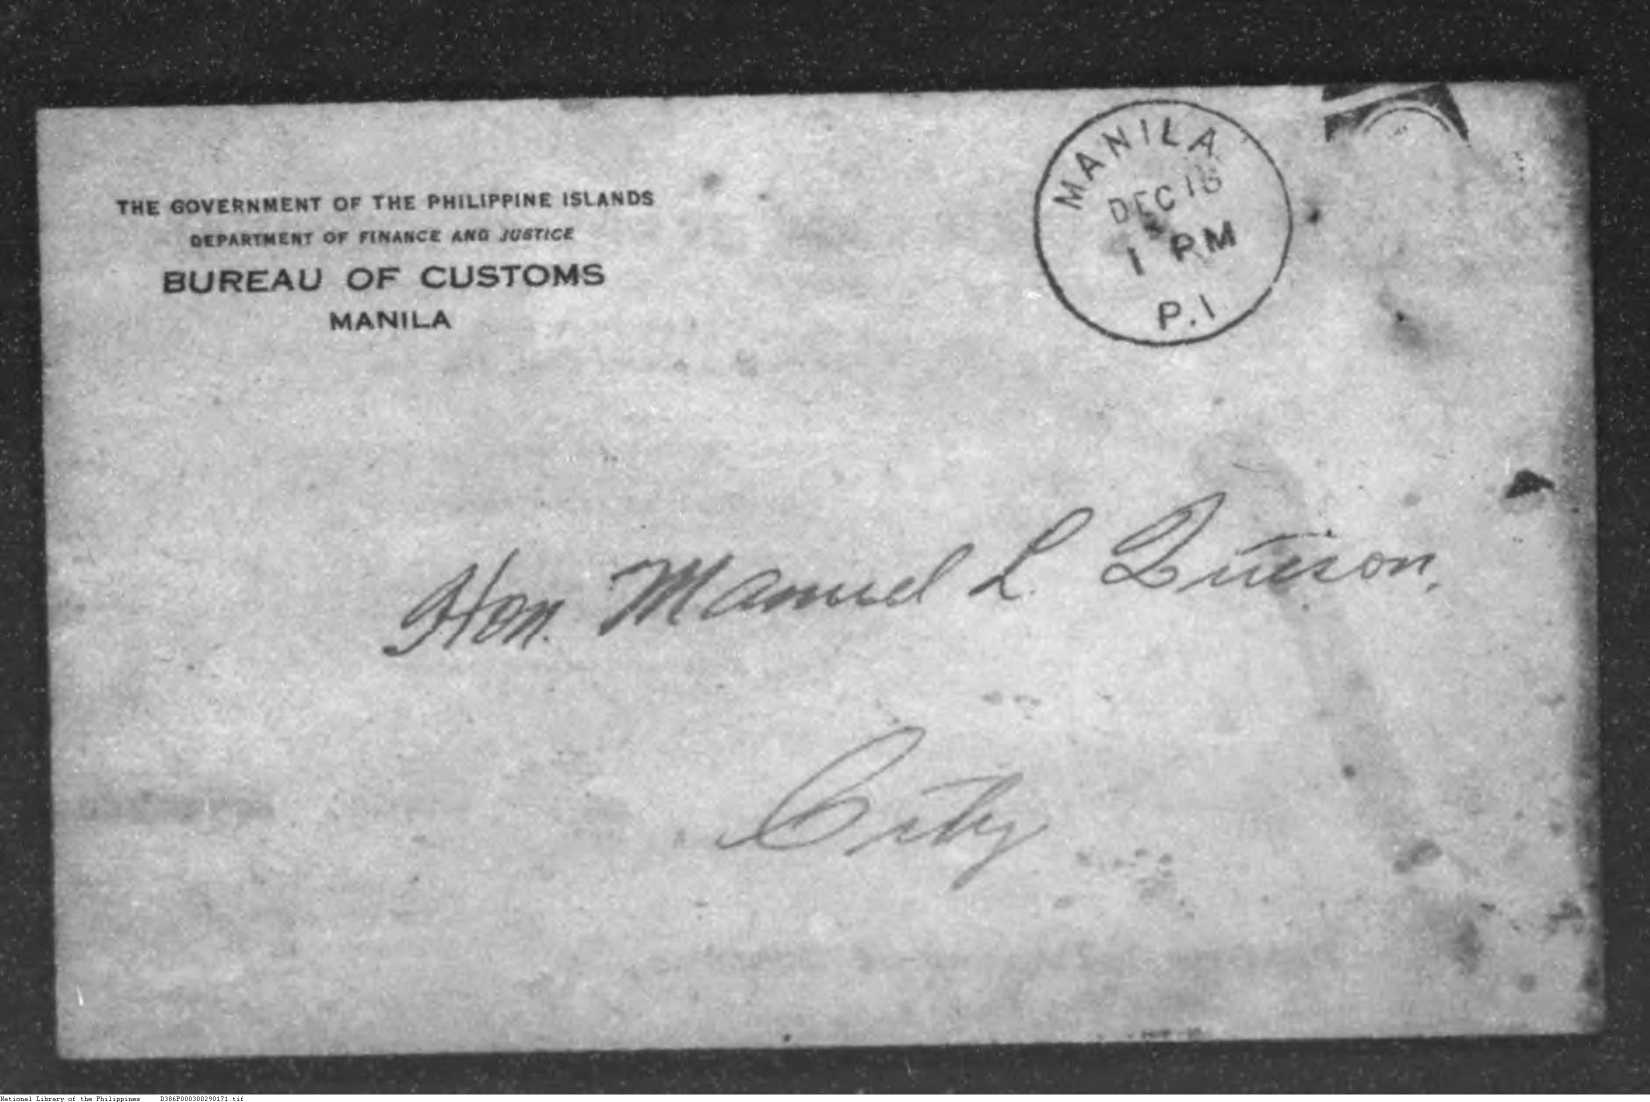 THE GOVERNMENT OF THE PHILIPPINE ISLANDS
DEPARTMENT OF FINANCE AND JUSTICE
BUREAU OF CUSTOMS
MANILA
MANILA
DEC 18
1 PM
P.I.
Hon. Manuel L. Queson,
City
National Library of the Philippines D386P000300290171.tif